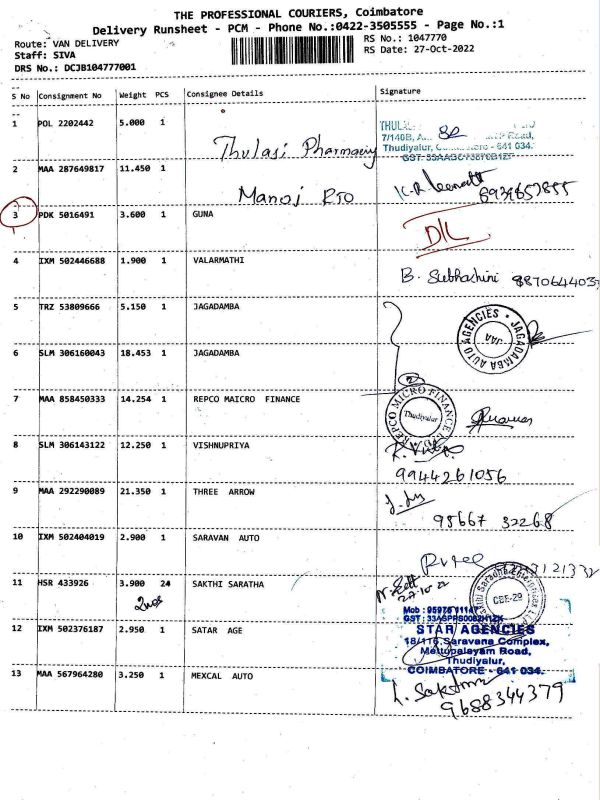 THE PROFESSIONAL COURIERS, Coimbatore
Delivery Runsheet - PCM - Phone No.:0422-3505555 - Page No.:1
Route: VAN DELIVERY RS No.: 1047770
Staff: SIVA RS Date: 27-Oct-2022
DRS No.: DCJB104777001
S No Consignment No Weight PCS Consignee Details Signature
1 POL 2202442 5.000 1
Thulasi Pharmacy
7/140B, Road,
Thudiyalur, - 641 034.
2 MAA 287649817 11.450 1
Manoj RTO
3 PDK 5016491 3.600 1 GUNA
D/L
4 IXM 502446688 1.900 1 VALARMATHI
B. Subhashini 887064403
5 TRZ 53809666 5.150 1 JAGADAMBA
JAGADAMBA AUTO AGENCIES
JAA
6 SLM 306160043 18.453 1 JAGADAMBA
7 MAA 858450333 14.254 1 REPCO MAICRO FINANCE
REPCO MICRO FINANCE
Thudiyalur
8 SLM 306143122 12.250 1 VISHNUPRIYA
9944261056
9 MAA 292290089 21.350 1 THREE ARROW
95667 32268
10 IXM 502404019 2.900 1 SARAVAN AUTO
11 HSR 433926 3.900 24 SAKTHI SARATHA
27-10-22
CBE-29
Mob : 95976 11147
12 IXM 502376187 2.950 1 SATAR AGE
STAR AGENCIES
18/116, Saravana Complex,
Mettupalayam Road,
Thudiyalur,
COIMBATORE - 641 034.
13 MAA 567964280 3.250 1 MEXCAL AUTO
9688344379